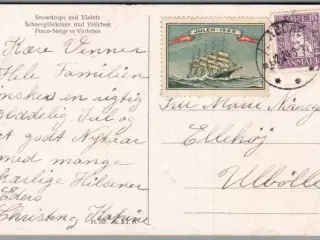 Snowdrops and Violets
Schneeglöckchen und Veilchen
Perce-Neige et Violettes
JULEN · 1924
Kære Venner
Hele Familien
ønskes en rigtig
glædelig Jul og
et godt Nytaar
med mange
kærlige Hilsener
Eders
Christine
Frk. Marie
Ellehøj
Ulbølle